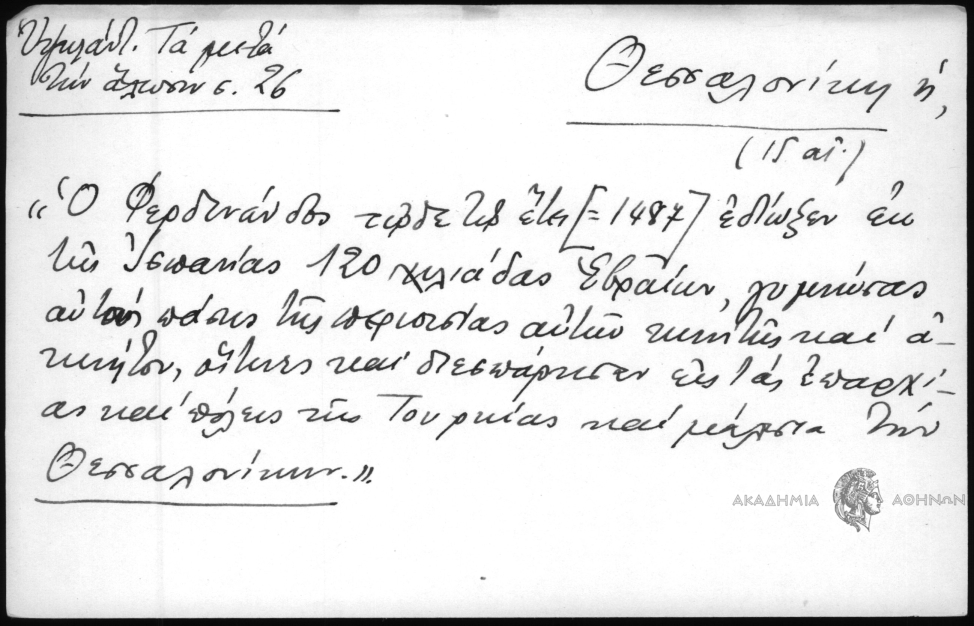 Ὑψηλάντ. Τά μετά
τήν ἅλωσιν σ. 26
Θεσσαλονίκη ἡ,
(15 αἰ.)
«Ὁ Φερδινάνδος τῷδε τῷ ἔτει [=1487] ἐδίωξεν ἐκ
τῆς Ἱσπανίας 120 χιλιάδας Ἑβραίων, γυμνώσας
αὐτούς πάσης τῆς περιουσίας αὐτῶν κινητῆς καί ἀ-
κινήτου, οἵτινες καί διεσπάρησαν εἰς τάς ἐπαρχί-
ας καί πόλεις τῆς Τουρκίας καί μάλιστα τήν
Θεσσαλονίκην.».
ΑΚΑΔΗΜΙΑ ΑΘΗΝΩΝ